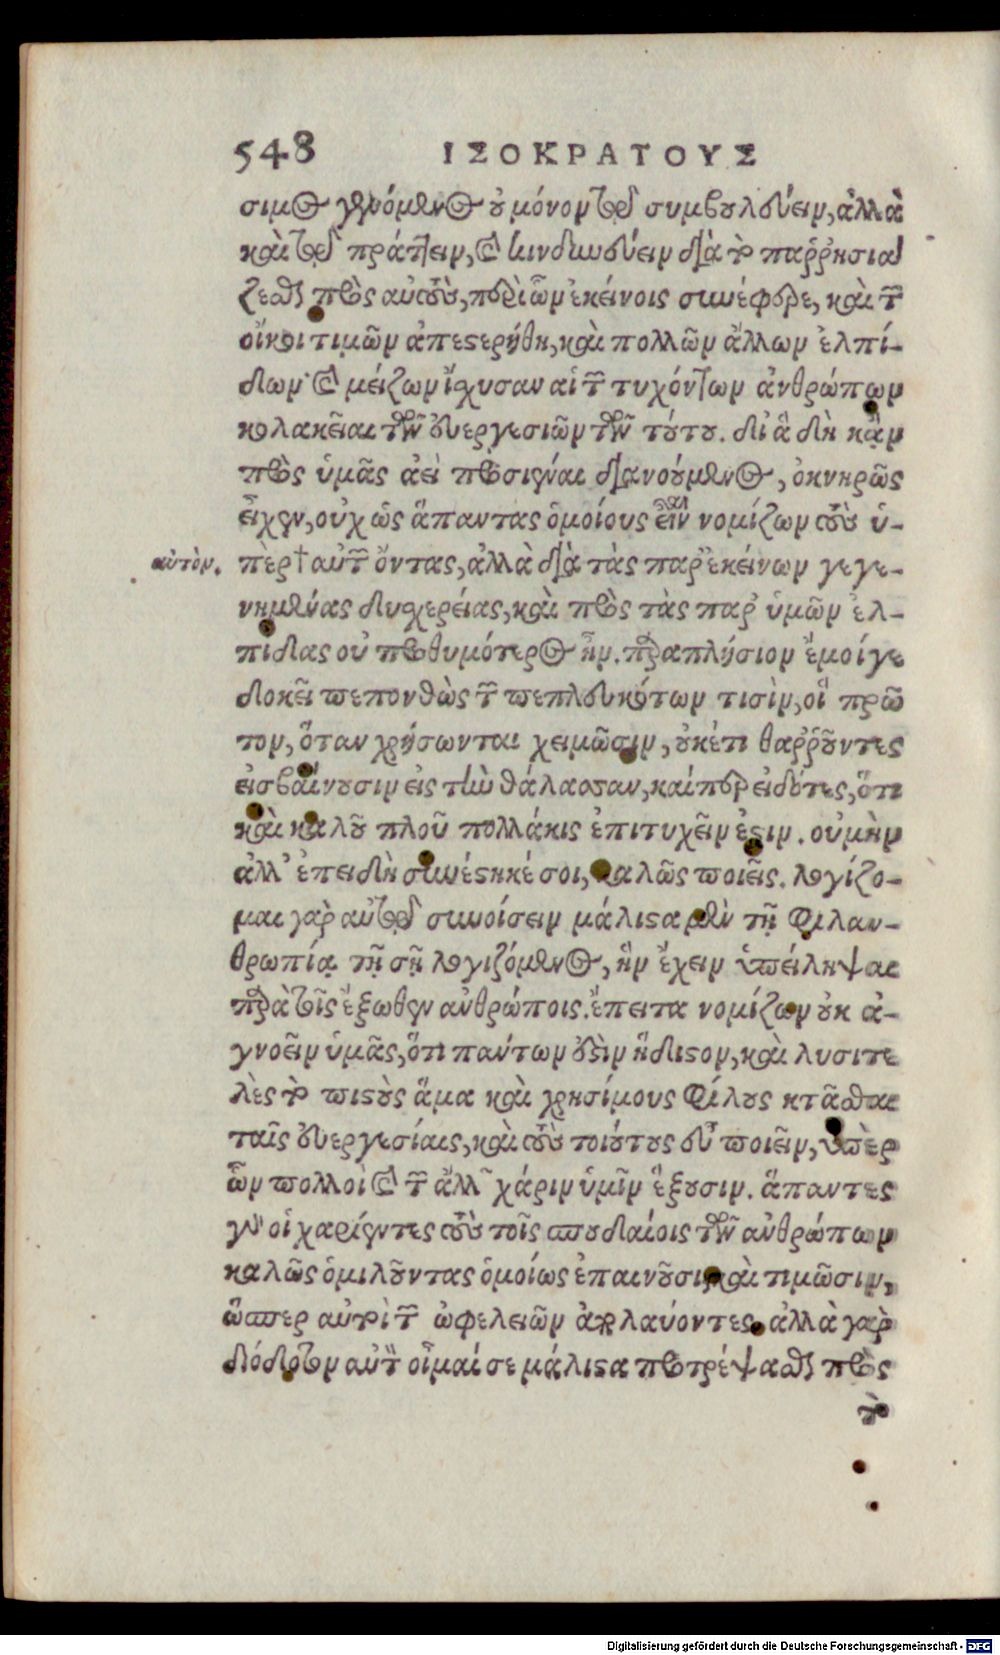 548 ΙΣΟΚΡΑΤΟΥΣ
σιμος γενόμενος οὐ μόνον τοῦ συμβουλεύειν, ἀλλὰ
καὶ τοῦ πράττειν, καὶ κινδυνεύειν διὰ τὸ παῤῥησιά
ζεσθαι πρὸς αὐτοὺς, περὶ ὧν ἐκείνοις συνέφερε, καὶ τῶν
οἴκοι τιμῶν ἀπεστερήθη, καὶ πολλῶν ἄλλων ἐλπί-
δων· καὶ μεῖζων ἴσχυσαν αἱ τῶν τυχόντων ἀνθρώπων
κολακεῖαι τῶν εὐεργεσιῶν τῶν τούτου. δι' ἃ δὴ καὶ
πρὸς ὑμᾶς ἀεὶ προσιέναι διανούμενος, ὀκνηρῶς
εἶχεν, οὐχ ὡς ἅπαντας ὁμοίους εἶναι νομίζων τοὺς ὑ-
αὑτὸν. πὲρ † αὑτῶν ὄντας, ἀλλὰ διὰ τὰς παρ' ἐκείνων γεγε-
νημένας δυσχερείας, καὶ πρὸς τὰς παρ' ὑμῶν ἐλ-
πίδας οὐ προθυμότερος ἦν. παραπλήσιον ἔμοιγε
δοκεῖ πεπονθὼς τῶν πεπλευκότων τισὶν, οἳ πρῶ
τον, ὅταν χρήσωνται χειμῶσιν, οὐκέτι θαῤῥοῦντες
εἰσβαίνουσιν εἰς τὴν θάλασσαν, καίπερ εἰδότες, ὅτι
καὶ καλοῦ πλοῦ πολλάκις ἐπιτυχεῖν ἐστιν. οὐ μὴν
ἀλλ' ἐπειδὴ συνέστηκέ σοι, καλῶς ποιεῖς. λογίζο-
μαι γὰρ αὐτοῦ συνοίσειν μάλιστα μὲν τῇ φιλαν-
θρωπίᾳ τῇ σῇ λογιζόμενος, ἣν ἔχειν ὑπείληψαι
παρὰ τοῖς ἔξωθεν ἀνθρώποις. ἔπειτα νομίζων οὐκ ἀ-
γνοεῖν ὑμᾶς, ὅτι πάντων ἐστὶν ἥδιστον, καὶ λυσιτε
λὲς τὸ πιστοὺς ἅμα καὶ χρησίμους φίλους κτᾶσθαι
ταῖς εὐεργεσίαις, καὶ τοὺς τοιούτους εὖ ποιεῖν, ὑπὲρ
ὧν πολλοὶ καὶ τῶν ἄλλων χάριν ὑμῖν ἕξουσιν. ἅπαντες
γὰρ οἱ χαρίεντες τοὺς τοῖς σπουδαίοις τῶν ἀνθρώπων
καλῶς ὁμιλοῦντας ὁμοίως ἐπαινοῦσι, καὶ τιμῶσιν,
ὥσπερ αὐτοὶ τῶν ὠφελειῶν ἀπολαύοντες. ἀλλὰ γὰρ
διόδοτον αὐτὸν οἶμαί σε μάλιστα προτρέψασθαι πρὸς
τὸ
Digitalisierung gefördert durch die Deutsche Forschungsgemeinschaft - DFG